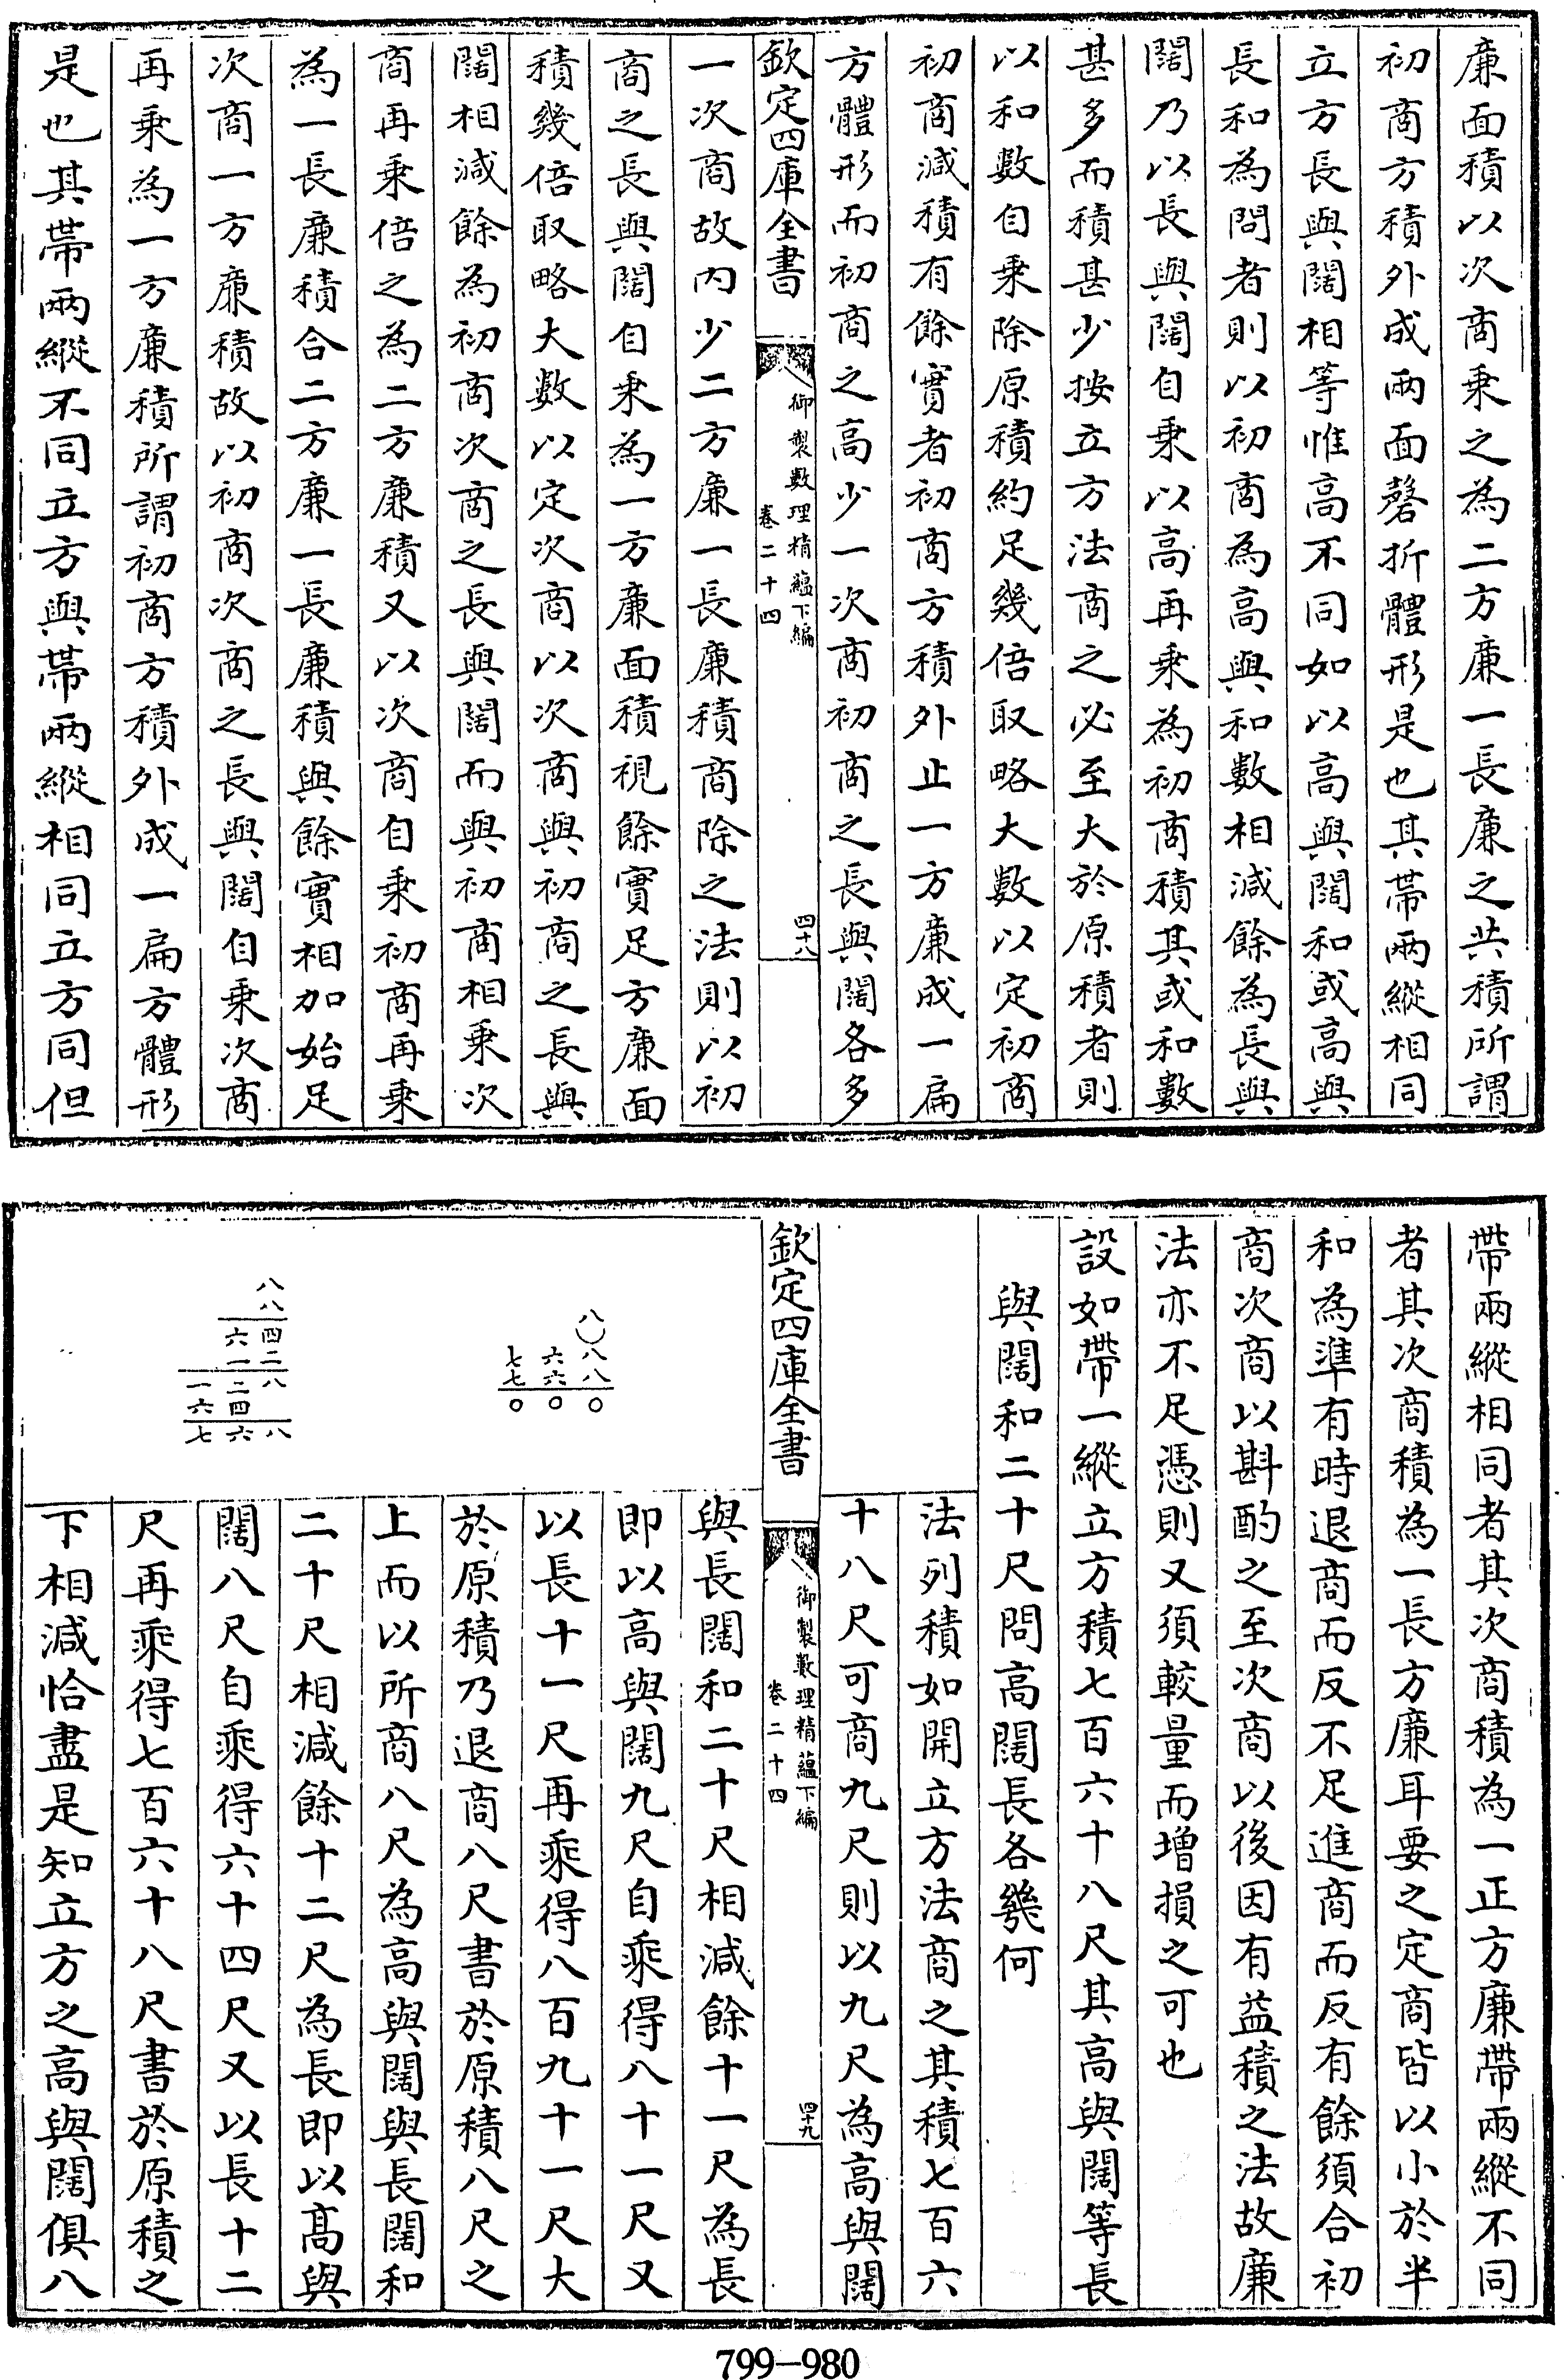 廉面積以次商乗之為二方廉一長廉之共積所謂
初商方積外成兩面磬折體形是也其帶兩縱相同
立方長與闊相等惟高不同如以高與闊和或高與
長和為問者則以初商為高與和數相減餘為長與
闊乃以長與闊自乗以高再乗為初商積其或和數
甚多而積甚少按立方法商之必至大於原積者則
以和數自乗除原積約足幾倍取略大數以定初商
初商減積有餘實者初商方積外止一方廉成一扁
方體形而初商之高少一次商初商之長與闊各多
欽定四庫全書
御製數理精藴下編
卷二十四
四十八
一次商故内少二方廉一長廉積商除之法則以初
商之長與闊自乗為一方廉面積視餘實足方廉面
積幾倍取略大數以定次商以次商與初商之長與
闊相減餘為初商次商之長與闊而與初商相乗次
商再乗倍之為二方廉積又以次商自乗初商再乗
為一長廉積合二方廉一長廉積與餘實相加始足
次商一方廉積故以初商次商之長與闊自乗次商
再乗為一方廉積所謂初商方積外成一扁方體形
是也其帶兩縱不同立方與帶兩縱相同立方同但
帶兩縱相同者其次商積為一正方廉帶兩縱不同
者其次商積為一長方廉耳要之定商皆以小於半
和為準有時退商而反不足進商而反有餘須合初
商次商以斟酌之至次商以後因有益積之法故廉
法亦不足憑則又須較量而增損之可也
設如帶一縱立方積七百六十八尺其高與闊等長
與闊和二十尺問高闊長各幾何
法列積如開立方法商之其積七百六
十八尺可商九尺則以九尺為高與闊
欽定四庫全書
御製數理精藴下編
卷二十四
四十九
八
〇八八
六六
七七
〇〇〇
八八
四二八
六一二四
一六
七六八
與長闊和二十尺相減餘十一尺為長
即以高與闊九尺自乘得八十一尺又
以長十一尺再乘得八百九十一尺大
於原積乃退商八尺書於原積八尺之
上而以所商八尺為高與闊與長闊和
二十尺相減餘十二尺為長即以髙與
闊八尺自乘得六十四尺又以長十二
尺再乘得七百六十八尺書於原積之
下相減恰盡是知立方之高與闊俱八
799-980